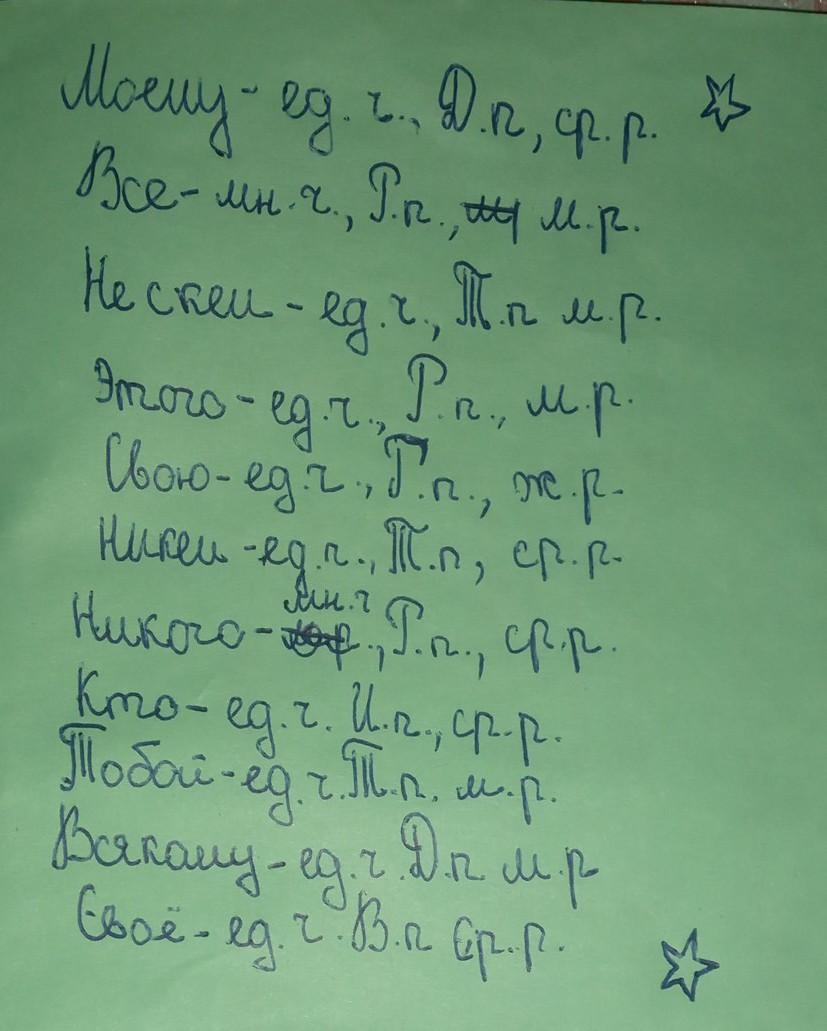 Моему - ед. ч., Д.п, ср. р.
Все - мн. ч., Р.п., м. р.
Не с кем - ед. ч., Т.п м. р.
Этого - ед. ч., Р.п., м. р.
Свою - ед. ч., Р.п., ж. р.
Никем - ед. ч., Т.п, ср. р.
мн. ч
Никого - ., Р.п., ср. р.
Кто - ед. ч. И.п., ср. р.
Тобой - ед. ч. Т.п. м. р.
Всякому - ед. ч. Д.п м. р
Своё - ед. ч. В.п Ср. р.